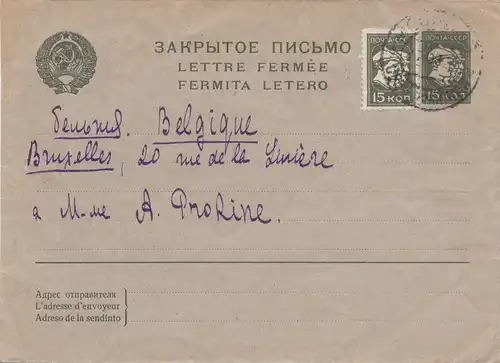 ЗАКРЫТОЕ ПИСЬМО
LETTRE FERMÉE
FERMITA LETERO
ПОЧТА СССР
15 КОП
ПОЧТА СССР
15 КОП.
Бельгия. Belgique
Bruxelles, 20 rue de la Linière
à M-me A. Prokine.
Адрес отправителя
L'adresse d'envoyeur
Adreso de la sendinto